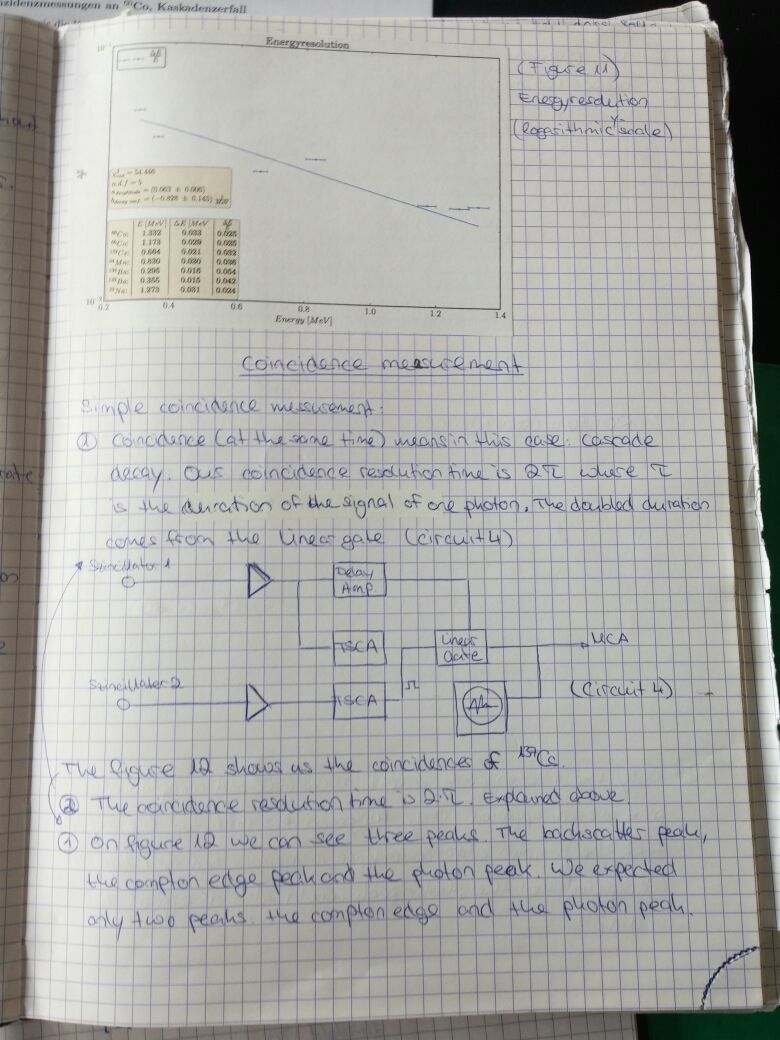 zidenzmessungen an ⁶⁰Co, Kaskadenzerfall
Energyresolution
ΔE/E
10⁻¹
(Figure 11)
Energyresolution
(logarithmic y-scale)
n.d.f = 5
E [MeV] ΔE [MeV] ΔE/E
⁶⁰Co: 1.332 0.033 0.025
⁶⁰Co: 1.173 0.029 0.025
0.664 0.021 0.032
⁵⁴Mn: 0.830 0.030 0.036
¹³³Ba: 0.296 0.016 0.054
¹³³Ba: 0.355 0.015 0.042
²²Na: 1.273 0.031 0.024
0.2 0.4 0.6 0.8 1.0 1.2 1.4
Energy [MeV]
Coincidence measurement
Simple coincidence measurement:
① Coincidence (at the same time) means in this case: cascade
decay. Our coincidence resolution time is 2τ where τ
is the duration of the signal of one photon. The doubled duration
comes from the linear gate (circuit 4)
Szincillator 1
Delay
Amp.
TSCA
Linear
Gate
MCA
Szincillator 2
TSCA
(Circuit 4)
The figure 12 shows us the coincidences of ¹³⁷Cs.
② The coincidence resolution time is 2·τ. Explained above.
① On figure 12 we can see three peaks. The backscatter peak,
the compton edge peak and the photon peak. We expected
only two peaks. the compton edge and the photon peak.